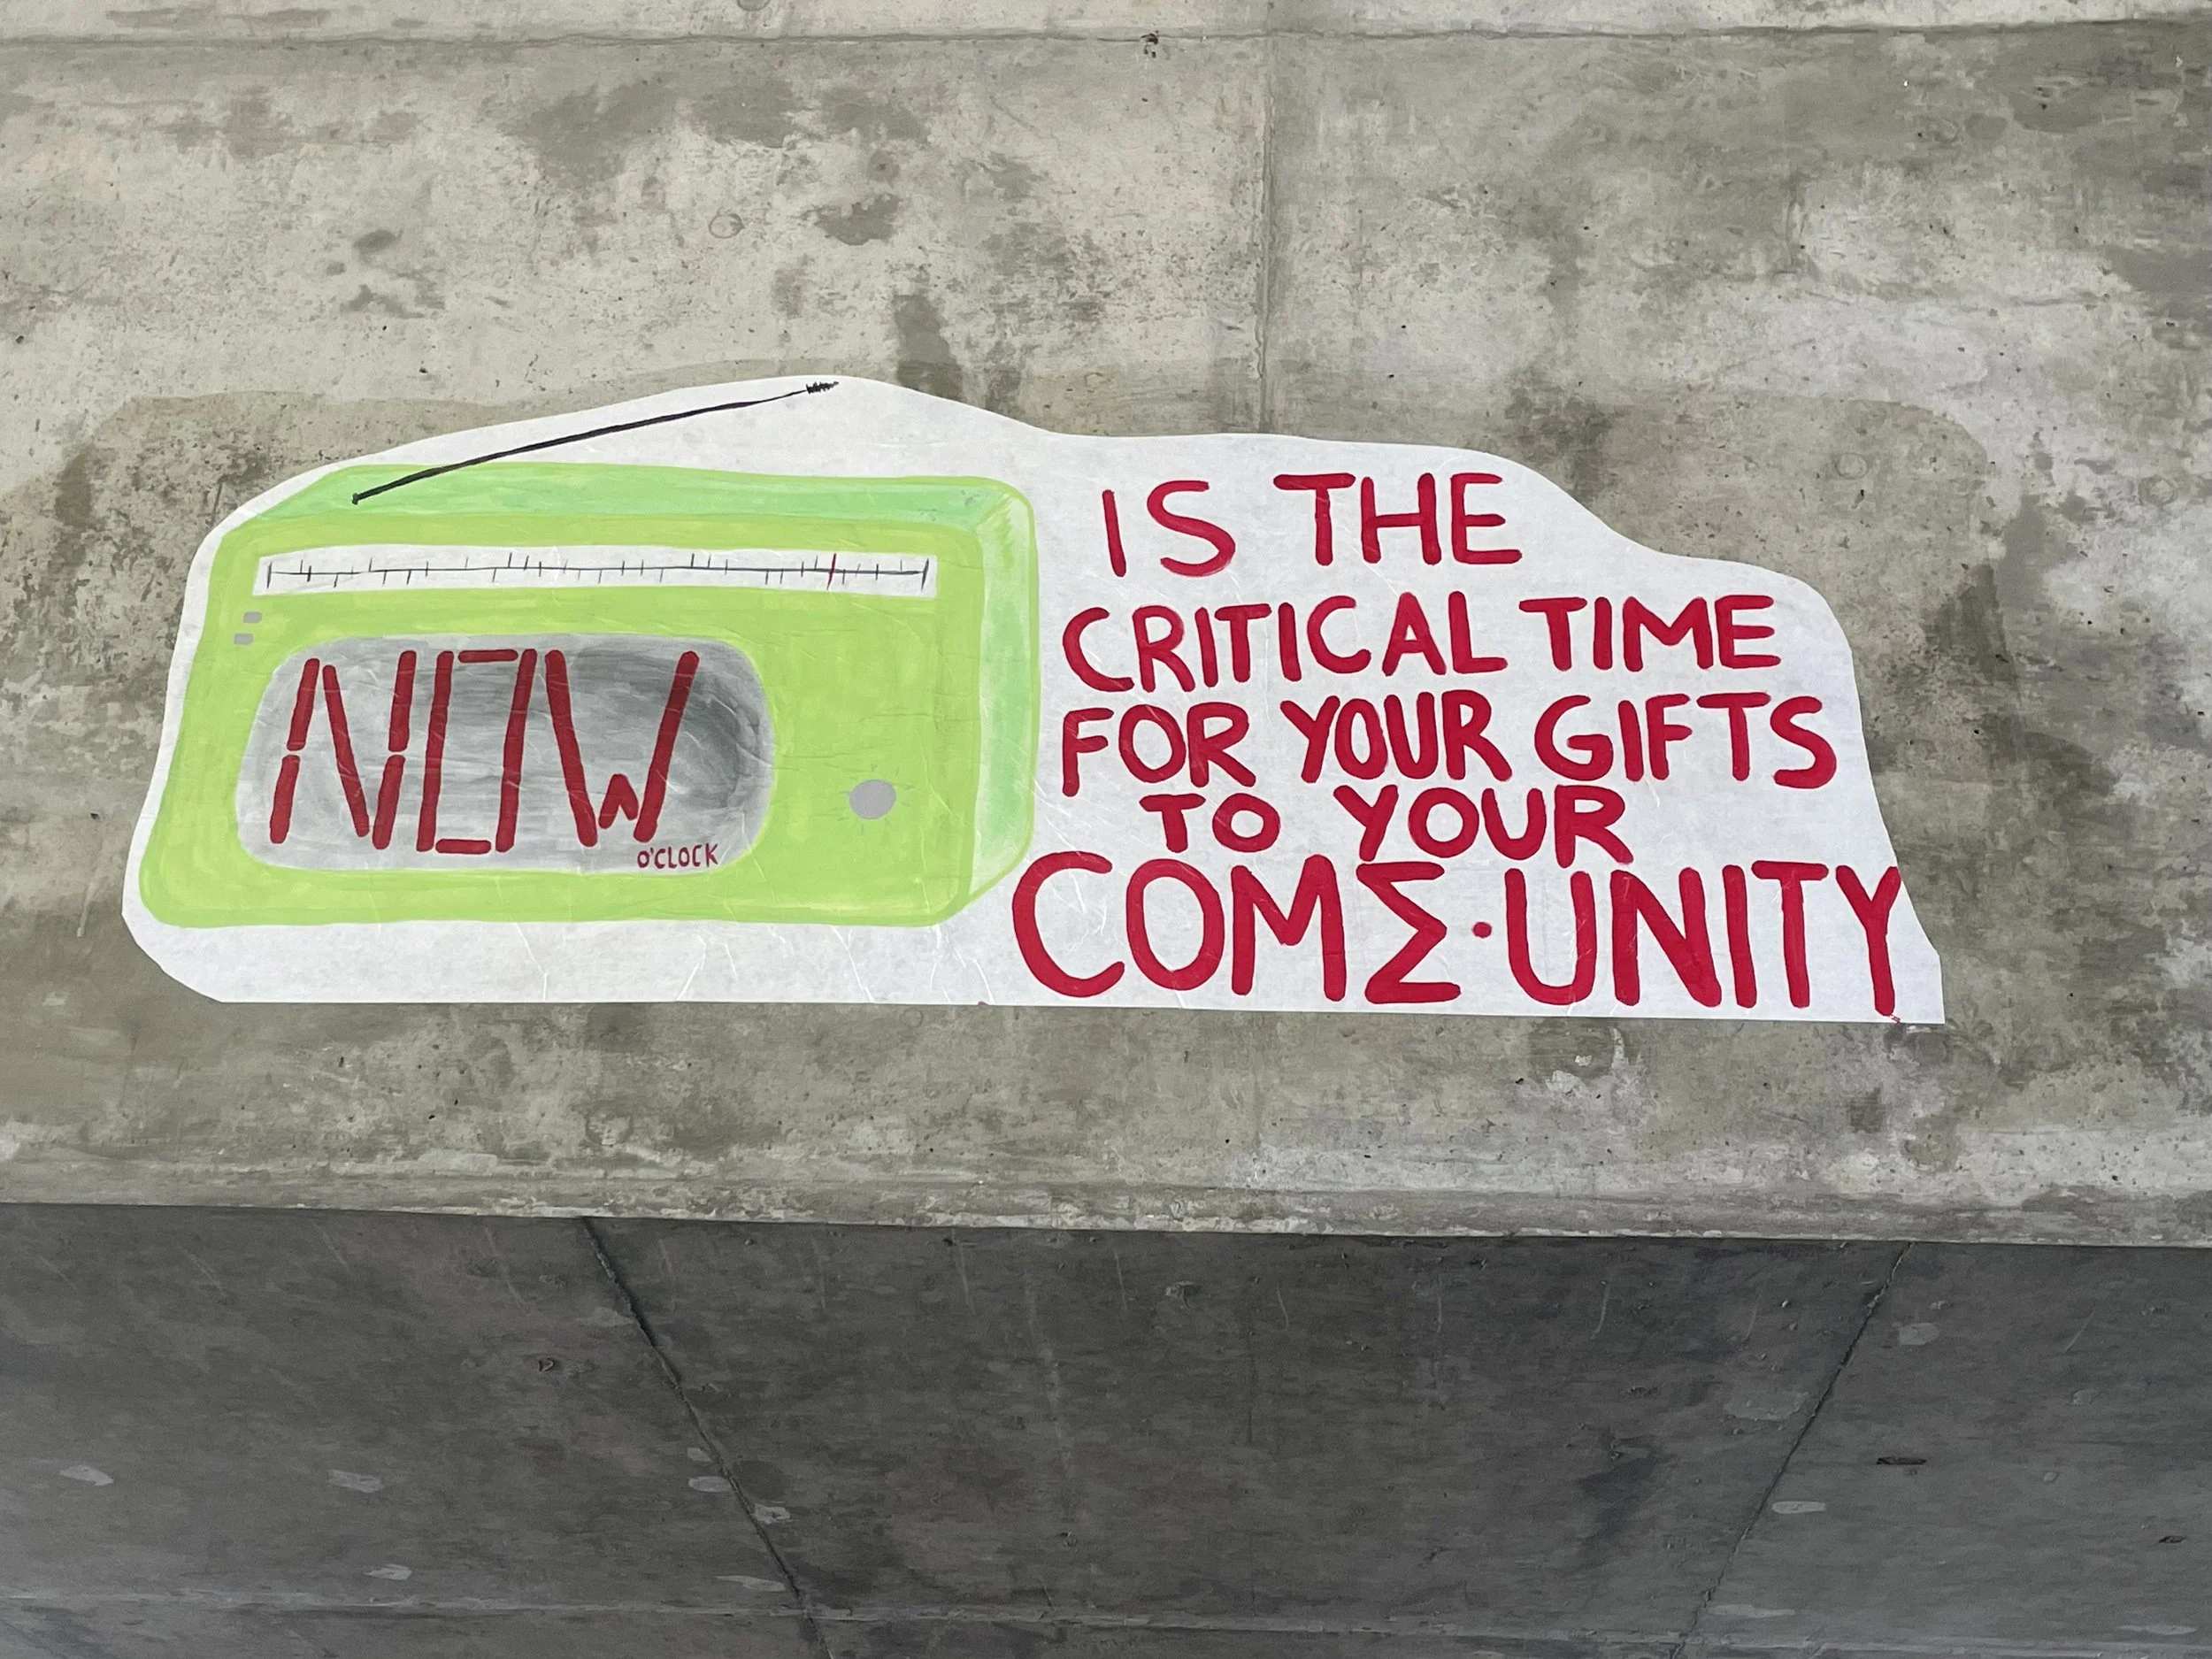 NOW
O'CLOCK
IS THE
CRITICAL TIME
FOR YOUR GIFTS
TO YOUR
COMΣ·UNITY